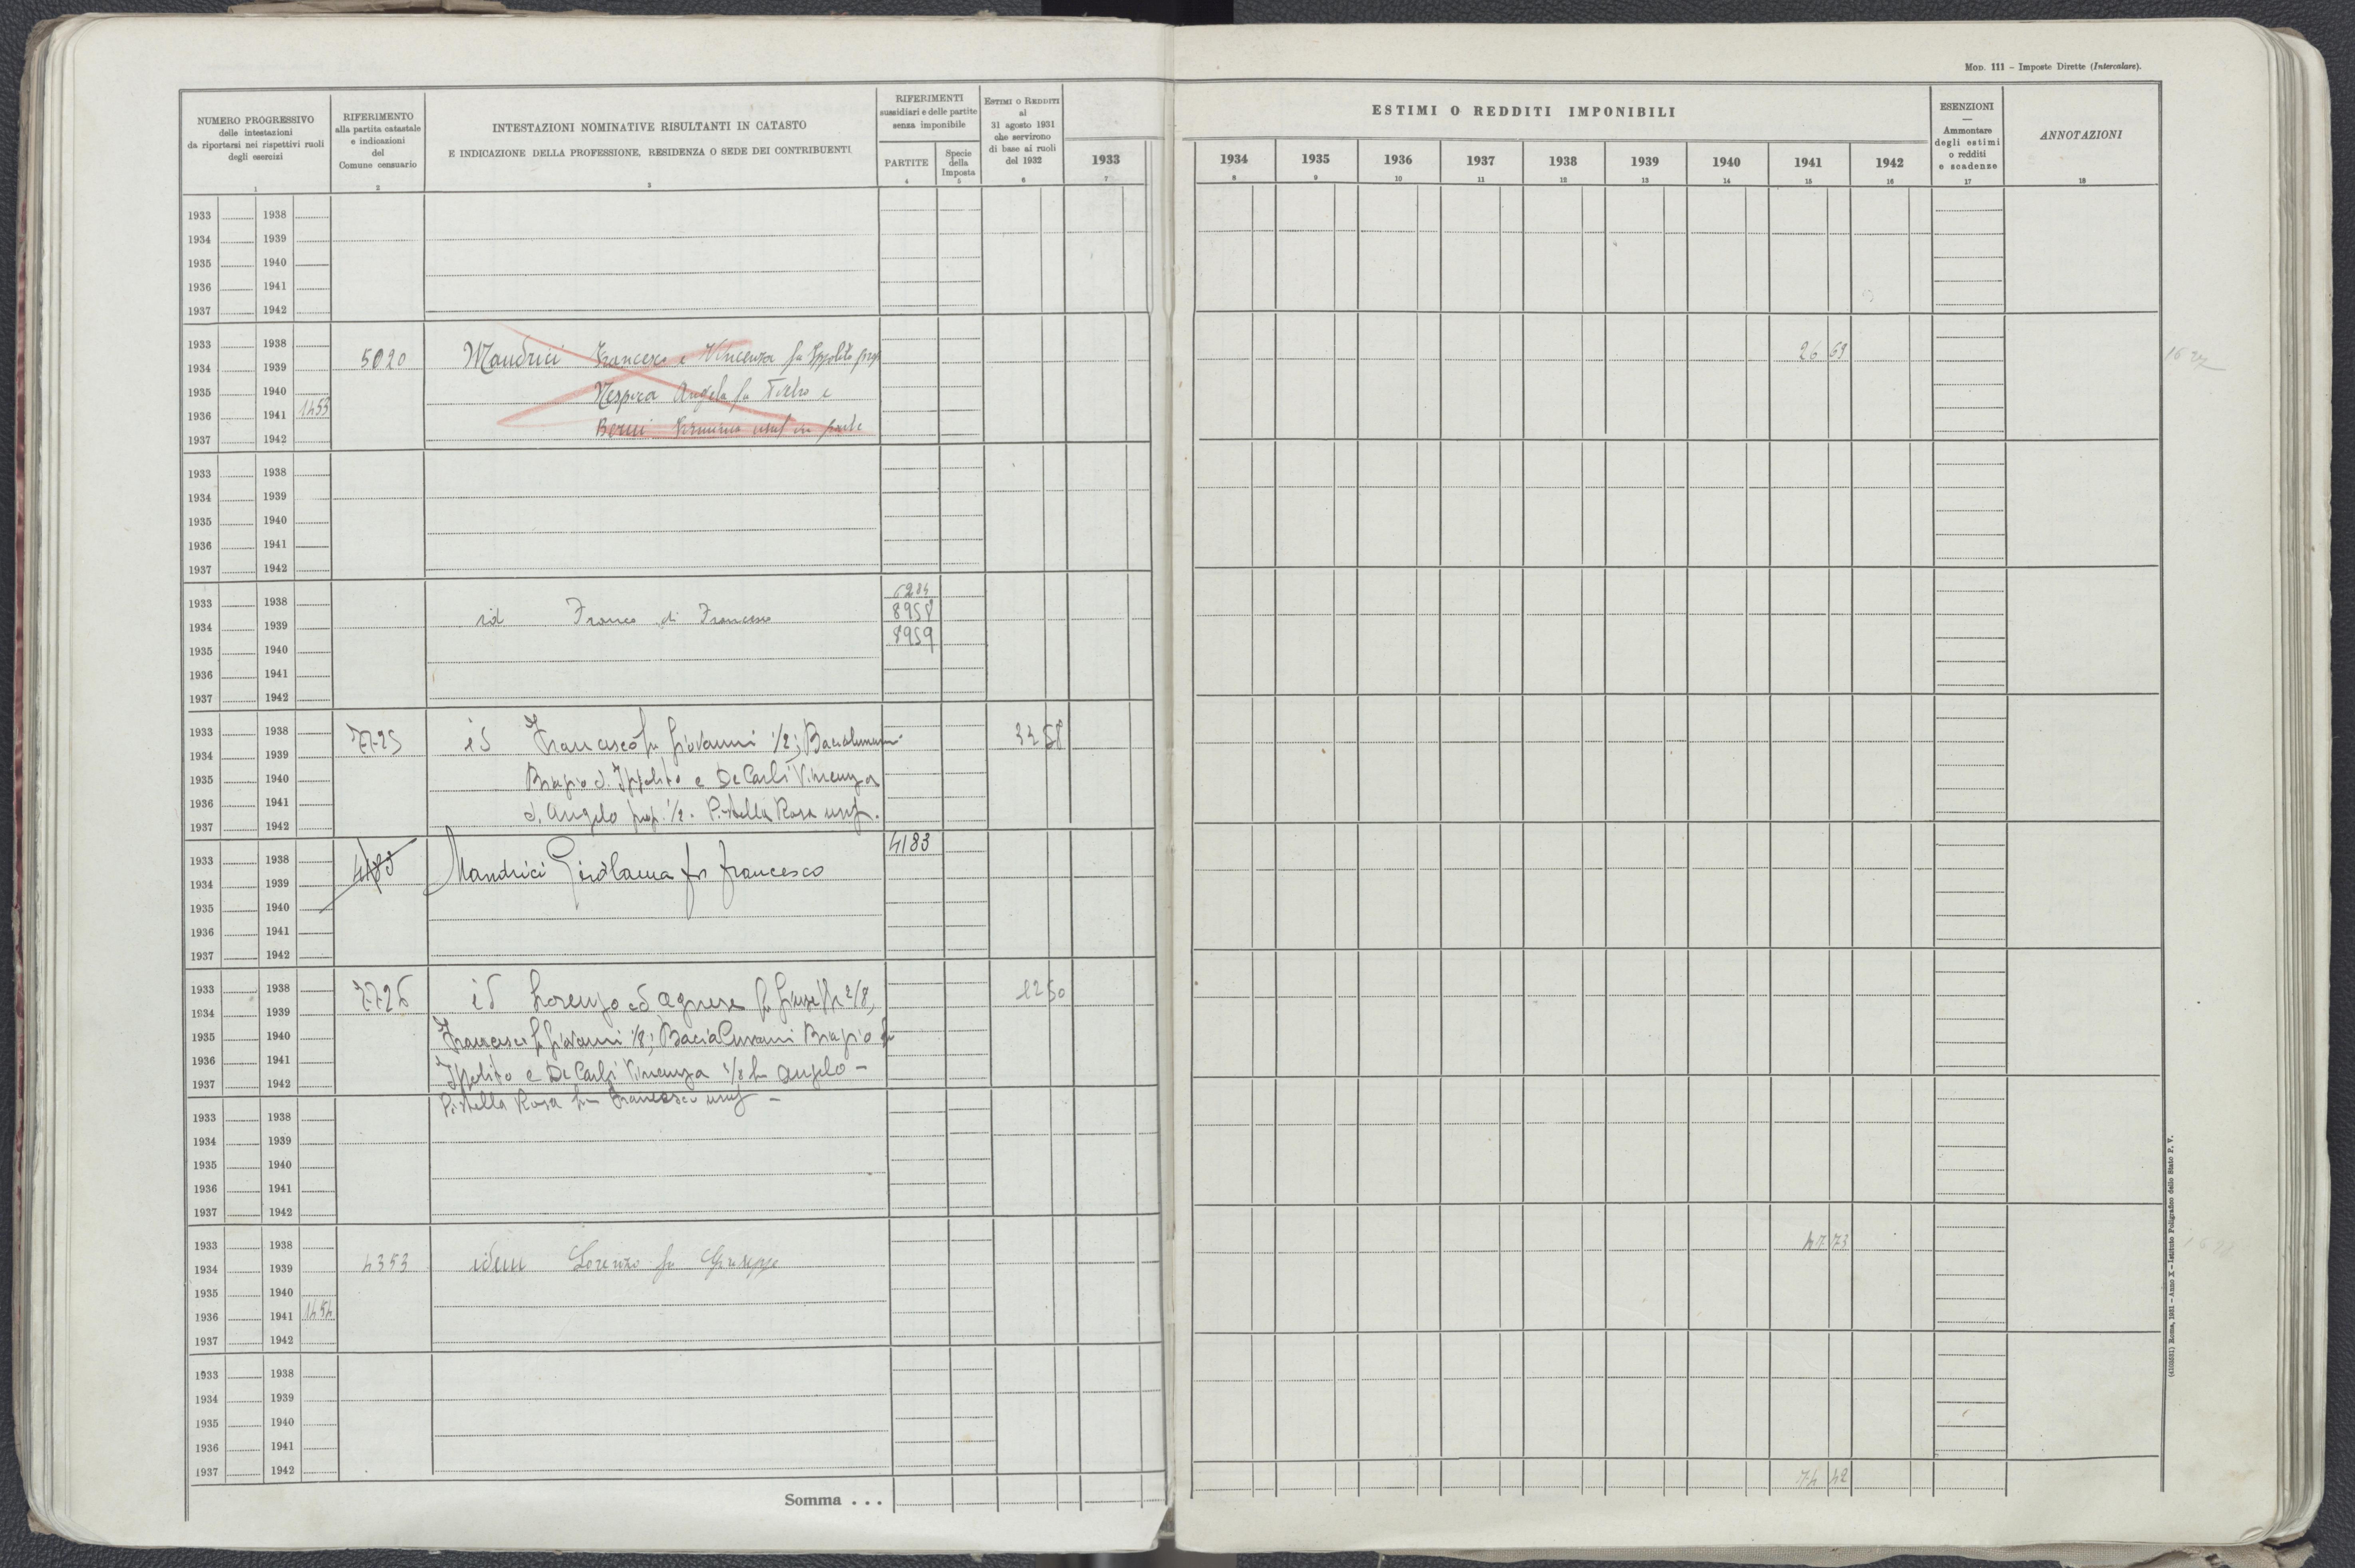 Mod. 111 – Imposte Dirette (Intercalare).
NUMERO PROGRESSIVO
delle intestazioni
da riportarsi nei rispettivi ruoli
degli esercizi
1
RIFERIMENTO
alla partita catastale
e indicazioni
del
Comune censuario
2
INTESTAZIONI NOMINATIVE RISULTANTI IN CATASTO
E INDICAZIONE DELLA PROFESSIONE, RESIDENZA O SEDE DEI CONTRIBUENTI
3
RIFERIMENTI
sussidiari e delle partite
senza imponibile
PARTITE
4
Specie
della
Imposta
5
Estimi o Redditi
al
31 agosto 1931
che servirono
di base ai ruoli
del 1932
6
ESTIMI O REDDITI IMPONIBILI
1933 1934 1935 1936 1937 1938 1939 1940 1941 1942
7 8 9 10 11 12 13 14 15 16
ESENZIONI
—
Ammontare
degli estimi
o redditi
e scadenze
17
ANNOTAZIONI
18
1933 1938
1934 1939
1935 1940
1936 1941
1937 1942
1933 1938
1934 1939 5020 Mandrici Francesco e Vincenza fu Ippolito prop 26 69
1935 1940 Nespica Angela fu Pietro e
1936 1941 1453
1937 1942 Berni usuf in parte
1933 1938
1934 1939
1935 1940
1936 1941
1937 1942
6284
1933 1938 8958
1934 1939 id Franco di Francesco
1935 1940 8959
1936 1941
1937 1942
1933 1938 7725 id Francesco fu Giovanni 1/2;
1934 1939
1935 1940 Biagio d. Ippolito e De Carli Vincenza
1936 1941
1937 1942 d. Angelo prop. 1/2. Pistella Rosa usuf.
4183
1933 1938 4183 Mandrici Girolama fu Francesco
1934 1939
1935 1940
1936 1941
1937 1942
1933 1938 7726 id Lorenzo ed Agnese fu Giuseppe 2/8, 12 50
1934 1939
1935 1940 Francesco fu Giovanni 1/8; Biagio fu
1936 1941
1937 1942 Ippolito e De Carli Vincenza 1/8 fu Angelo –
Pistella Rosa fu Francesco usuf –
1933 1938
1934 1939
1935 1940
1936 1941
1937 1942
1933 1938 47 73
1934 1939 4353 idem Lorenzo fu Giuseppe
1935 1940
1936 1941 1454
1937 1942
1933 1938
1934 1939
1935 1940
1936 1941
1937 1942
74 42
Somma . . .
(4105531) Roma, 1931 – Anno X – Istituto Poligrafico dello Stato P. V.